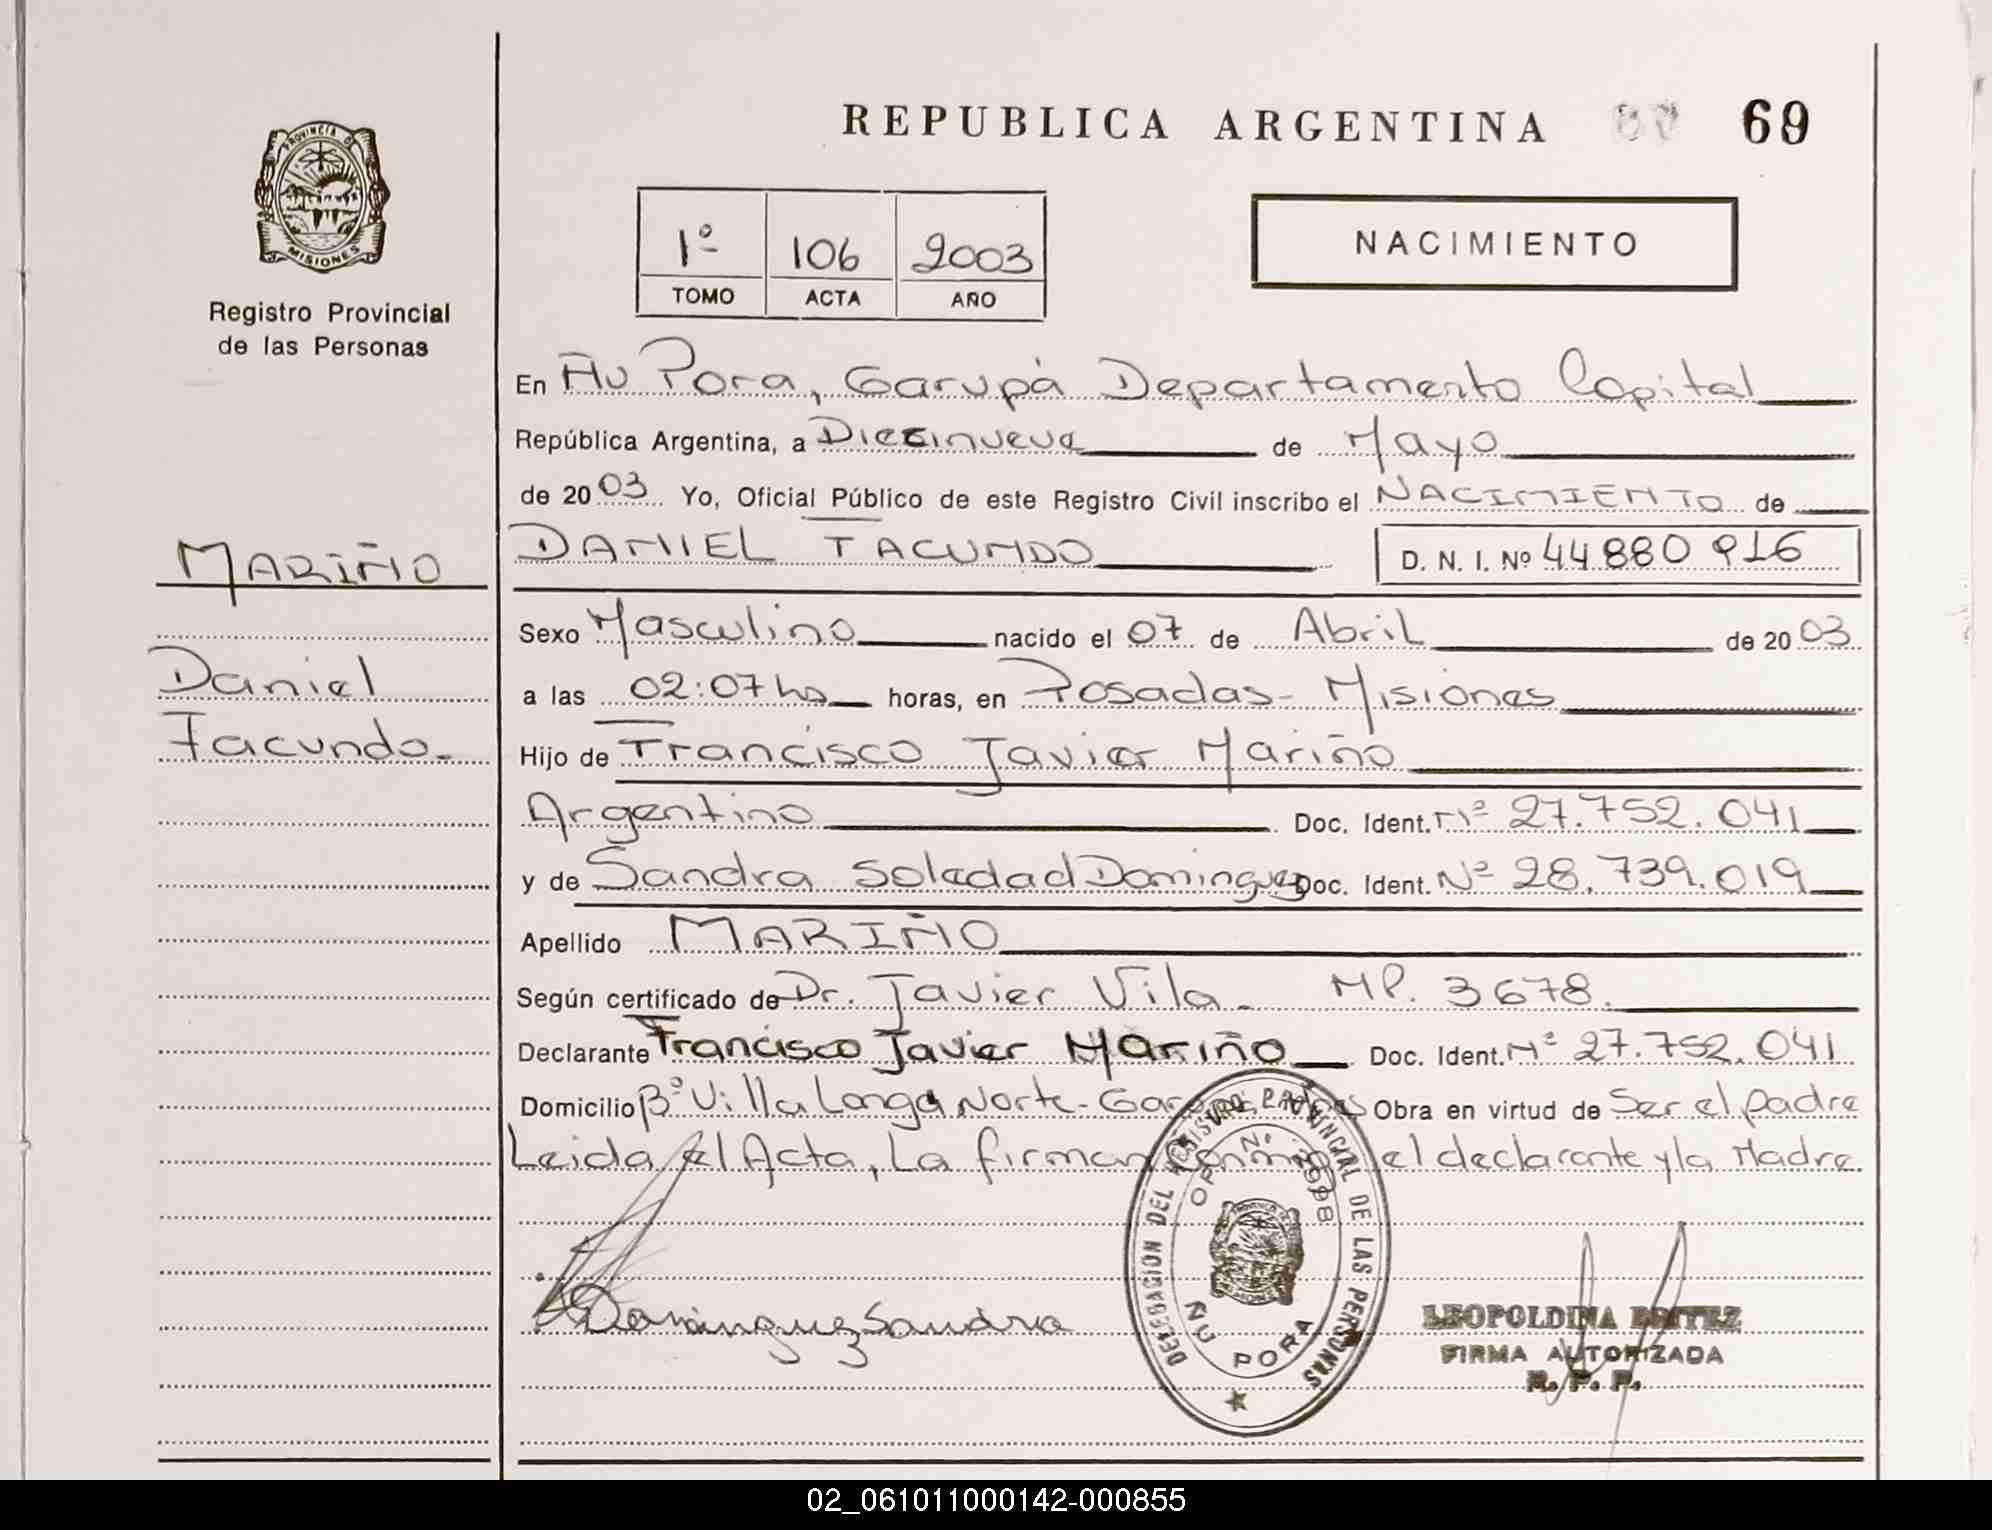 REPUBLICA ARGENTINA 69
PROVINCIA DE
MISIONES
Registro Provincial
de las Personas
1º 106 2003
TOMO ACTA AÑO
NACIMIENTO
En Ñu Pora, Garupá Departamento Capital
República Argentina, a Diecinueve de Mayo
de 2003 Yo, Oficial Público de este Registro Civil inscribo el NACIMIENTO de
MARIÑO
DANIEL FACUNDO D. N. I. Nº 44880916
Sexo Masculino nacido el 07 de Abril de 2003
Daniel
a las 02:07 hs horas, en Posadas - Misiones
Facundo.
Hijo de Francisco Javier Mariño
Argentino Doc. Ident. Nº 27.752.041
y de Sandra Soledad Dominguez Doc. Ident. Nº 28.739.019
Apellido MARIÑO
Según certificado de Dr. Javier Vila - MP. 3678.
Declarante Francisco Javier Mariño Doc. Ident. Nº 27.752.041
Domicilio Bº Villa Longa Norte - Obra en virtud de Ser el padre
Leida el Acta, La firman el declarante y la Madre
DELEGACION DEL REGISTRO PROVINCIAL DE LAS PERSONAS
ÑU PORA
Dominguez Sandra
LEOPOLDINA BRITEZ
FIRMA AUTORIZADA
R. P. P.
02_061011000142-000855